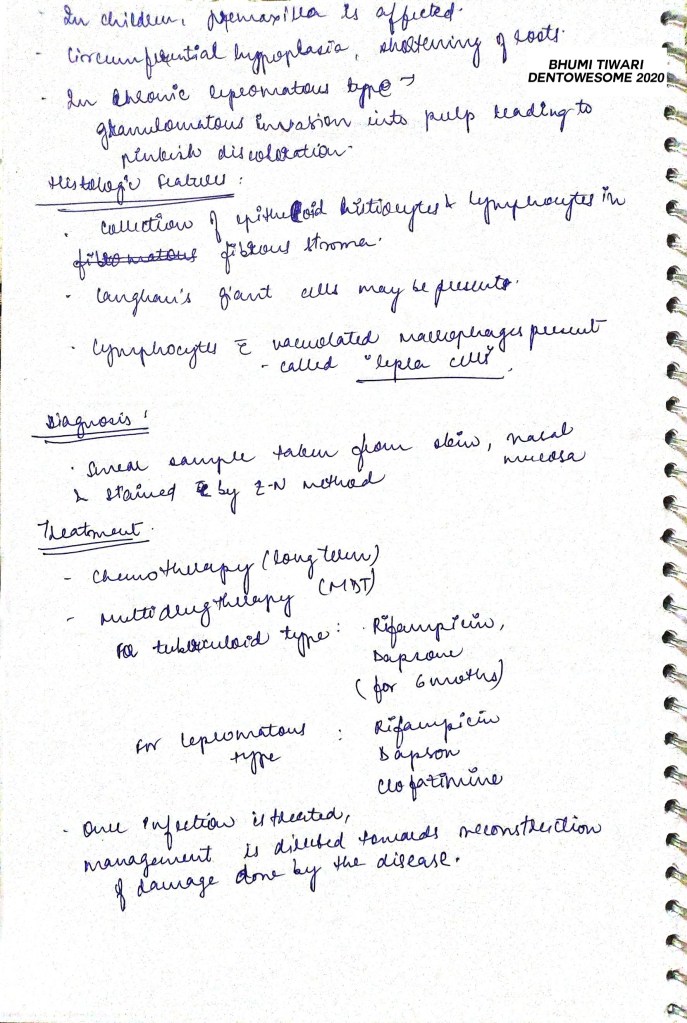 - In children, premaxilla is affected.
- Circumferential hypoplasia, shortening of roots.
BHUMI TIWARI
DENTOWESOME 2020
- In chronic lepromatous type →
granulomatous invasion into pulp leading to
pinkish discoloration.
Histologic features :
· Collection of epitheloid histiocytes & lymphocytes in
fibromatous fibrous stroma.
· Langhan's giant cells may be present.
· Lymphocytes c̄ vacuolated macrophages present
- called "lepra cells".
Diagnosis :
· Smear sample taken from skin, nasal
mucosa
& stained by Z-N method
Treatment.
- Chemotherapy (long term)
- Multidrug therapy (MDT)
For tuberculoid type : Rifampicin,
Dapsone
(for 6 moths)
For lepromatous : Rifampicin
type Dapson
Clofazimine
· Once infection is treated,
management is directed towards reconstruction
of damage done by the disease.